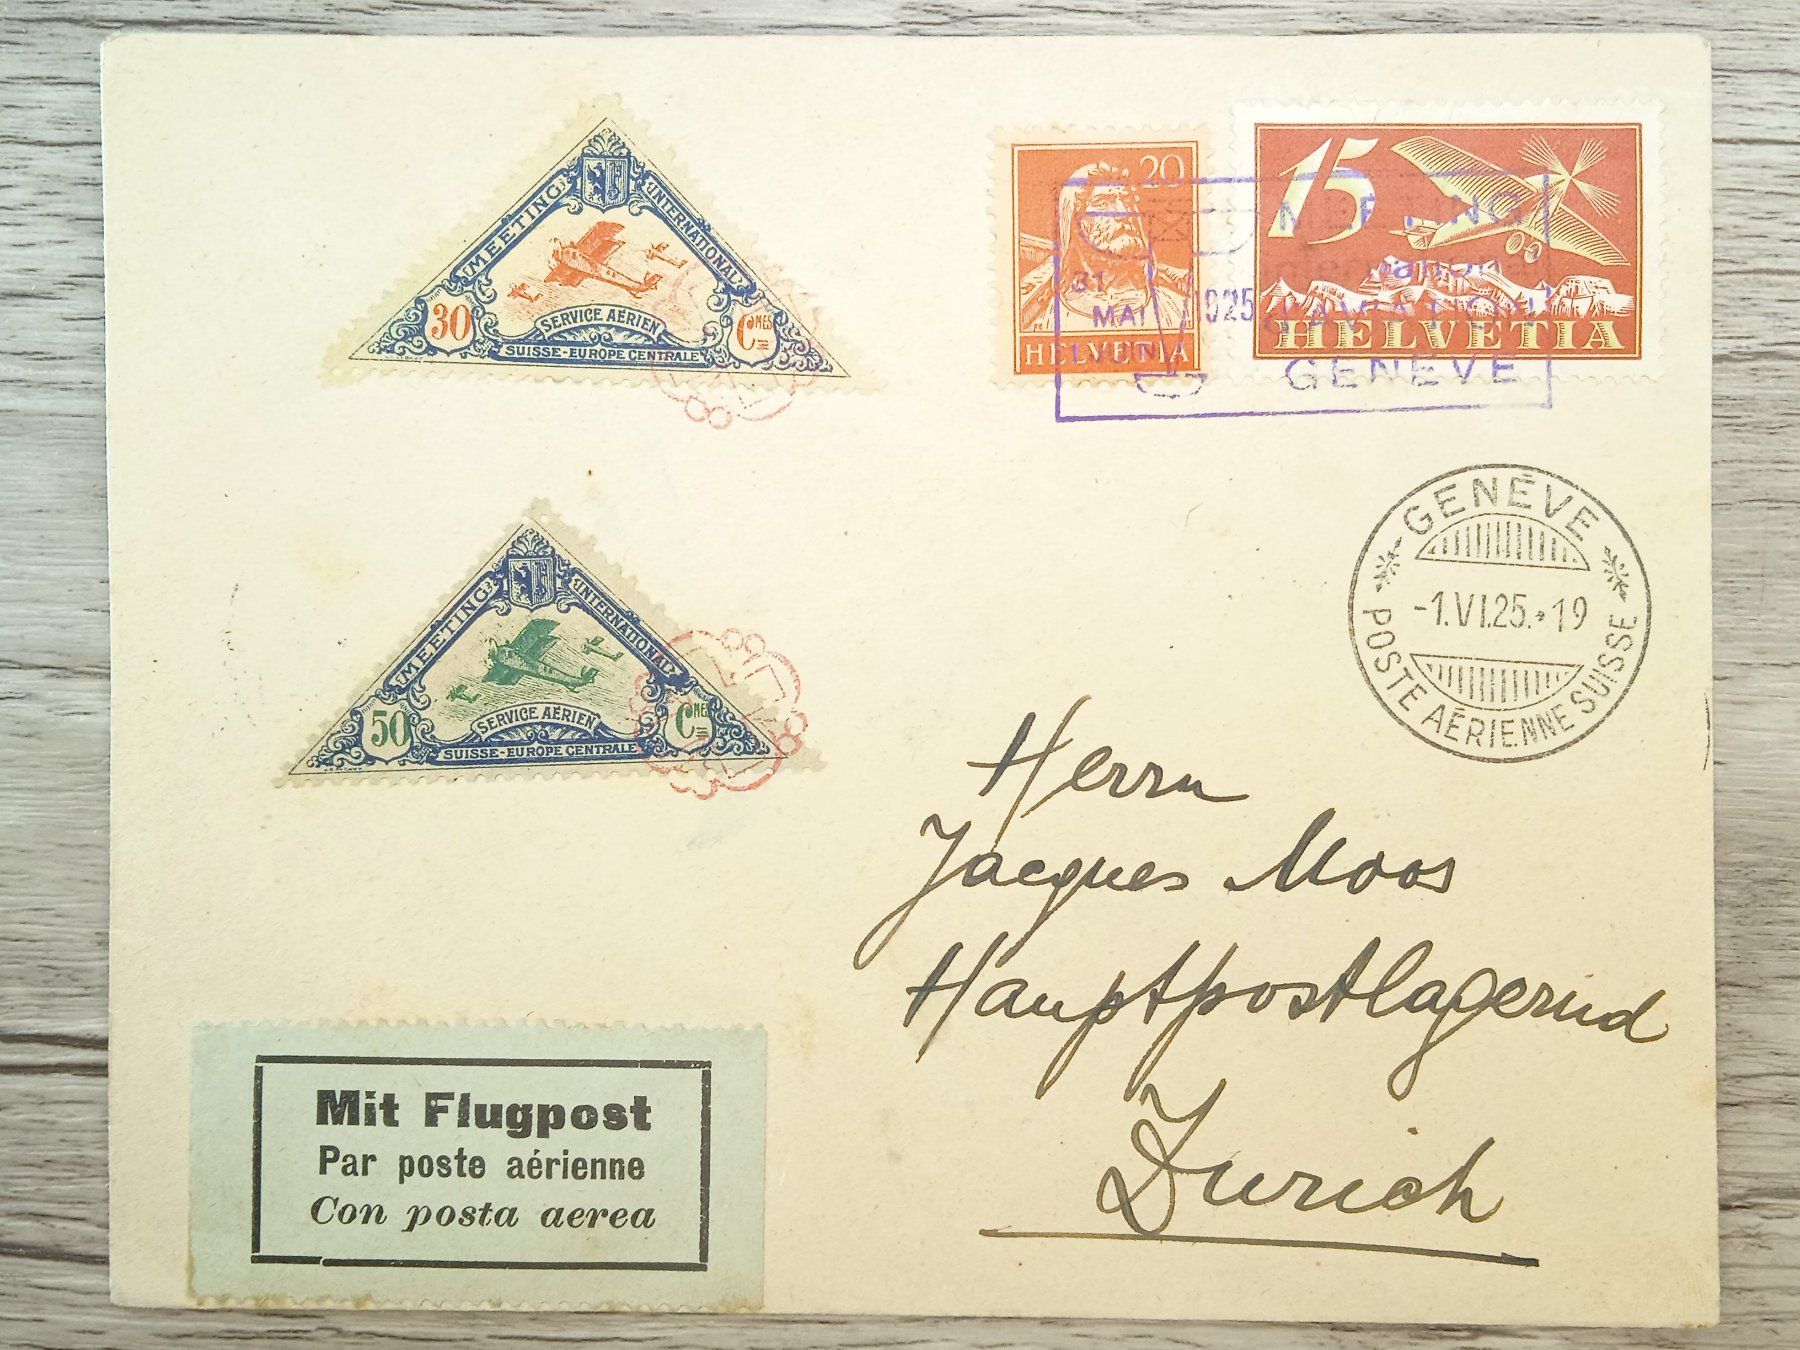 MEETING INTERNATIONAL
30 Cmes
SERVICE AÉRIEN
SUISSE-EUROPE CENTRALE
20
HELVETIA
15
HELVETIA
MEETING
International
D'AVIATION
GENÈVE
31
MAI
1925
MEETING INTERNATIONAL
50 Cmes
SERVICE AÉRIEN
SUISSE-EUROPE CENTRALE
GENÈVE
-1.VI.25.*19
POSTE AÉRIENNE SUISSE
Herrn
Jacques Moos
Hauptpostlagernd
Zurich
Mit Flugpost
Par poste aérienne
Con posta aerea